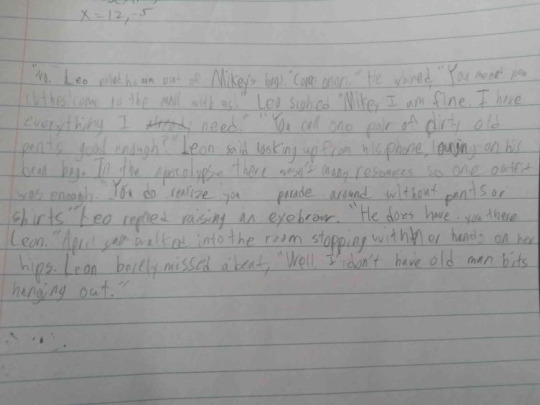 x = 12, -5
"No." Leo out of Mikey's "Come on." He whined, "You need
clothes come to the mall with us." Leo sighed "Mike, I am fine. I have
everything I need." "You call one pair of dirty old
pants good enough?" Leon said looking up from his phone, on his
bean bag. In the apocalypse there wasn't many resources so one outfit
was enough. "You do realize you parade around without pants or
shirts" Leo replied raising an eyebrow. "He does have you there
Leon." April walked into the room stopping with hands on her
hips. Leon barely missed a beat, "Well I don't have old man bits
hanging out."